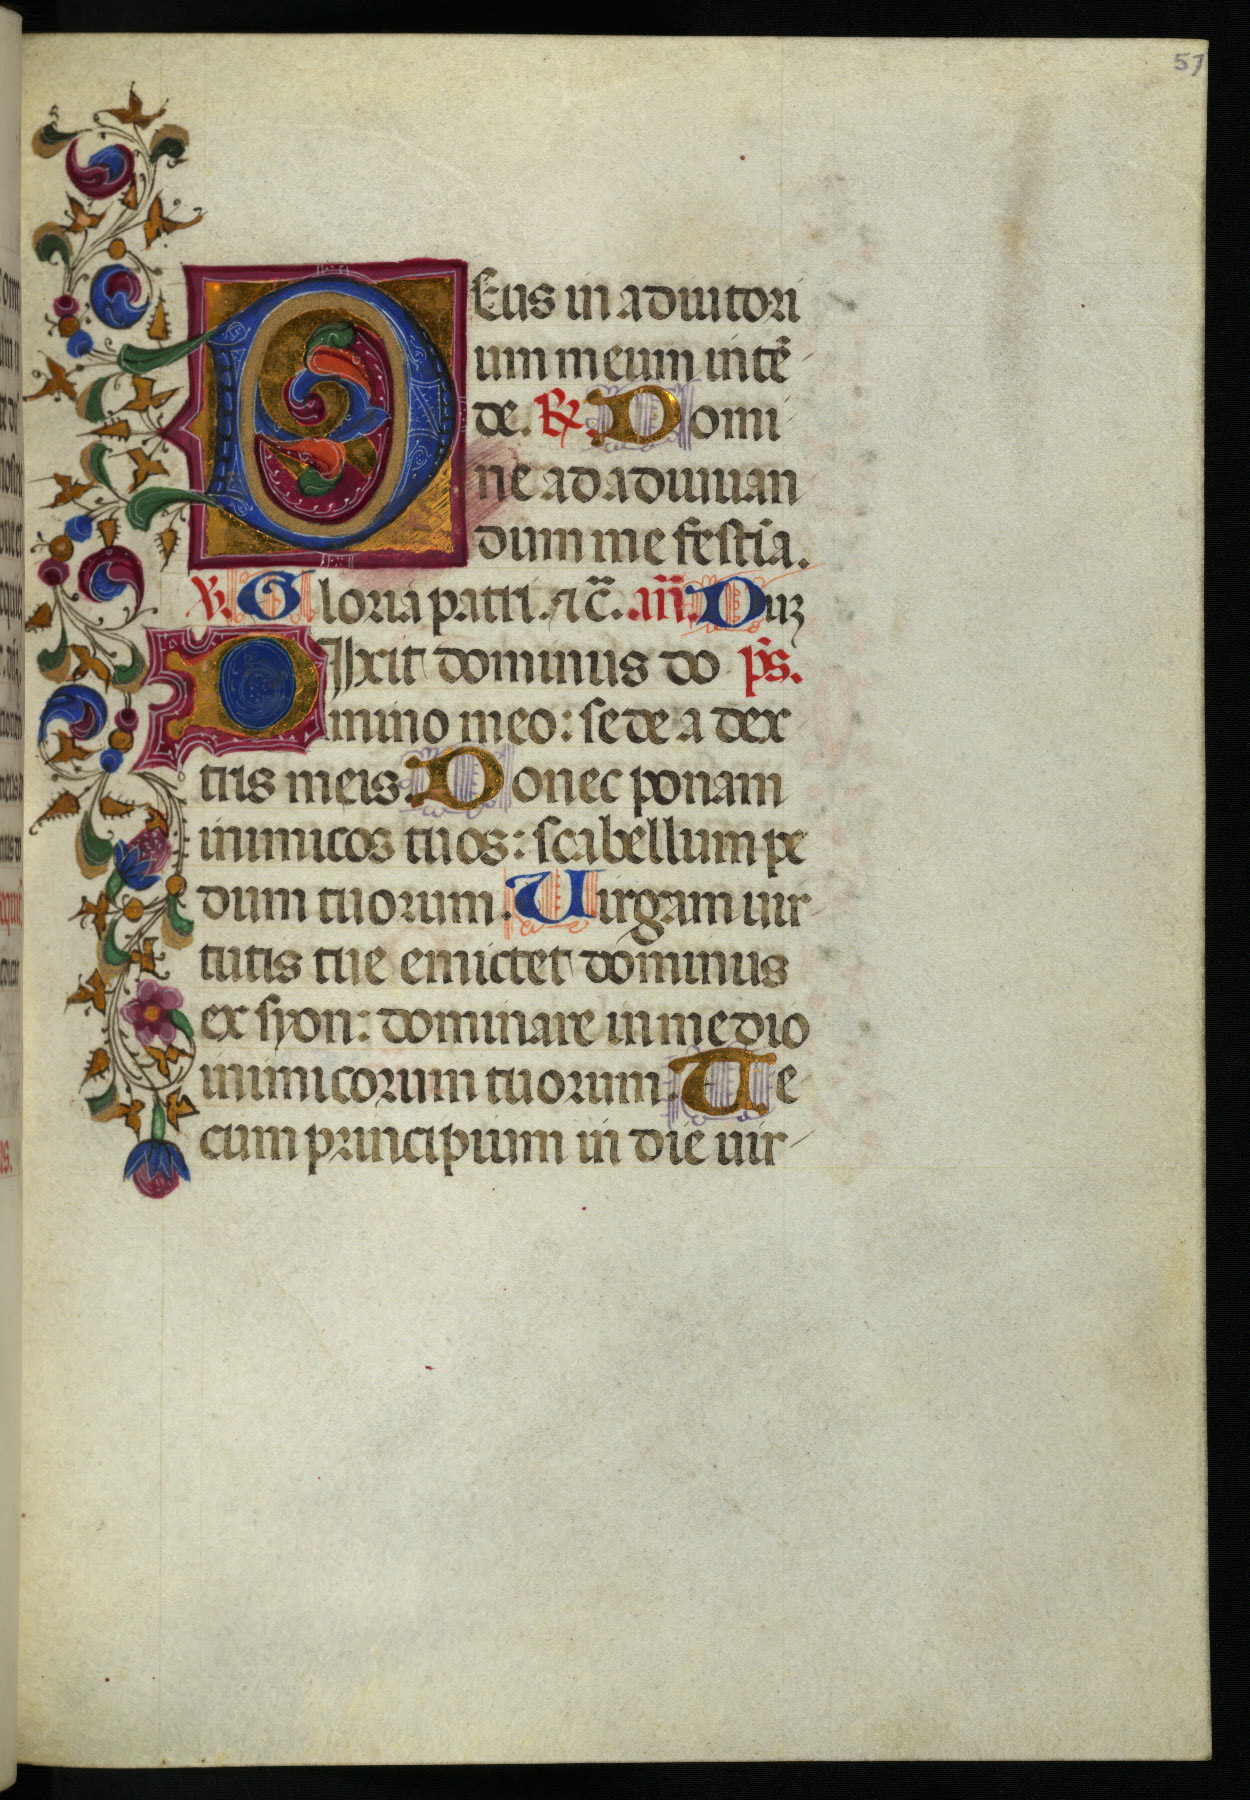 57
DEus in adiutori
um meum intē
de. ℟. Domi
ne ad adiuuan
dum me festīa.
℣. Gloria patri. ⁊ c̃. añ. Duʒ
DIxit dominus do p̄s.
mino meo: sede a dex
tris meis. Donec ponam
inimicos tuos: scabellum pe
dum tuorum. Uirgam uir
tutis tue emictet dominus
ex syon: dominare in medio
inimicorum tuorum. Te
cum principium in die uir